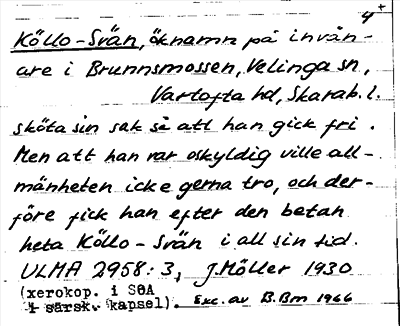 4+
Kôllo-Svän, öknamn på invån-
are i Brunnsmossen, Velinga sn,
Vartofta hd, Skarab. l.
sköta sin sak så att han gick fri.
Men att han var oskyldig ville all-
mänheten icke gerna tro, och der-
före fick han efter den betan
heta Kôllo-Svän i all sin tid.
ULMA 2958:3, J. Möller 1930
(xerokop. i SOA
i särsk. kapsel). Exc. av B.Bm 1966